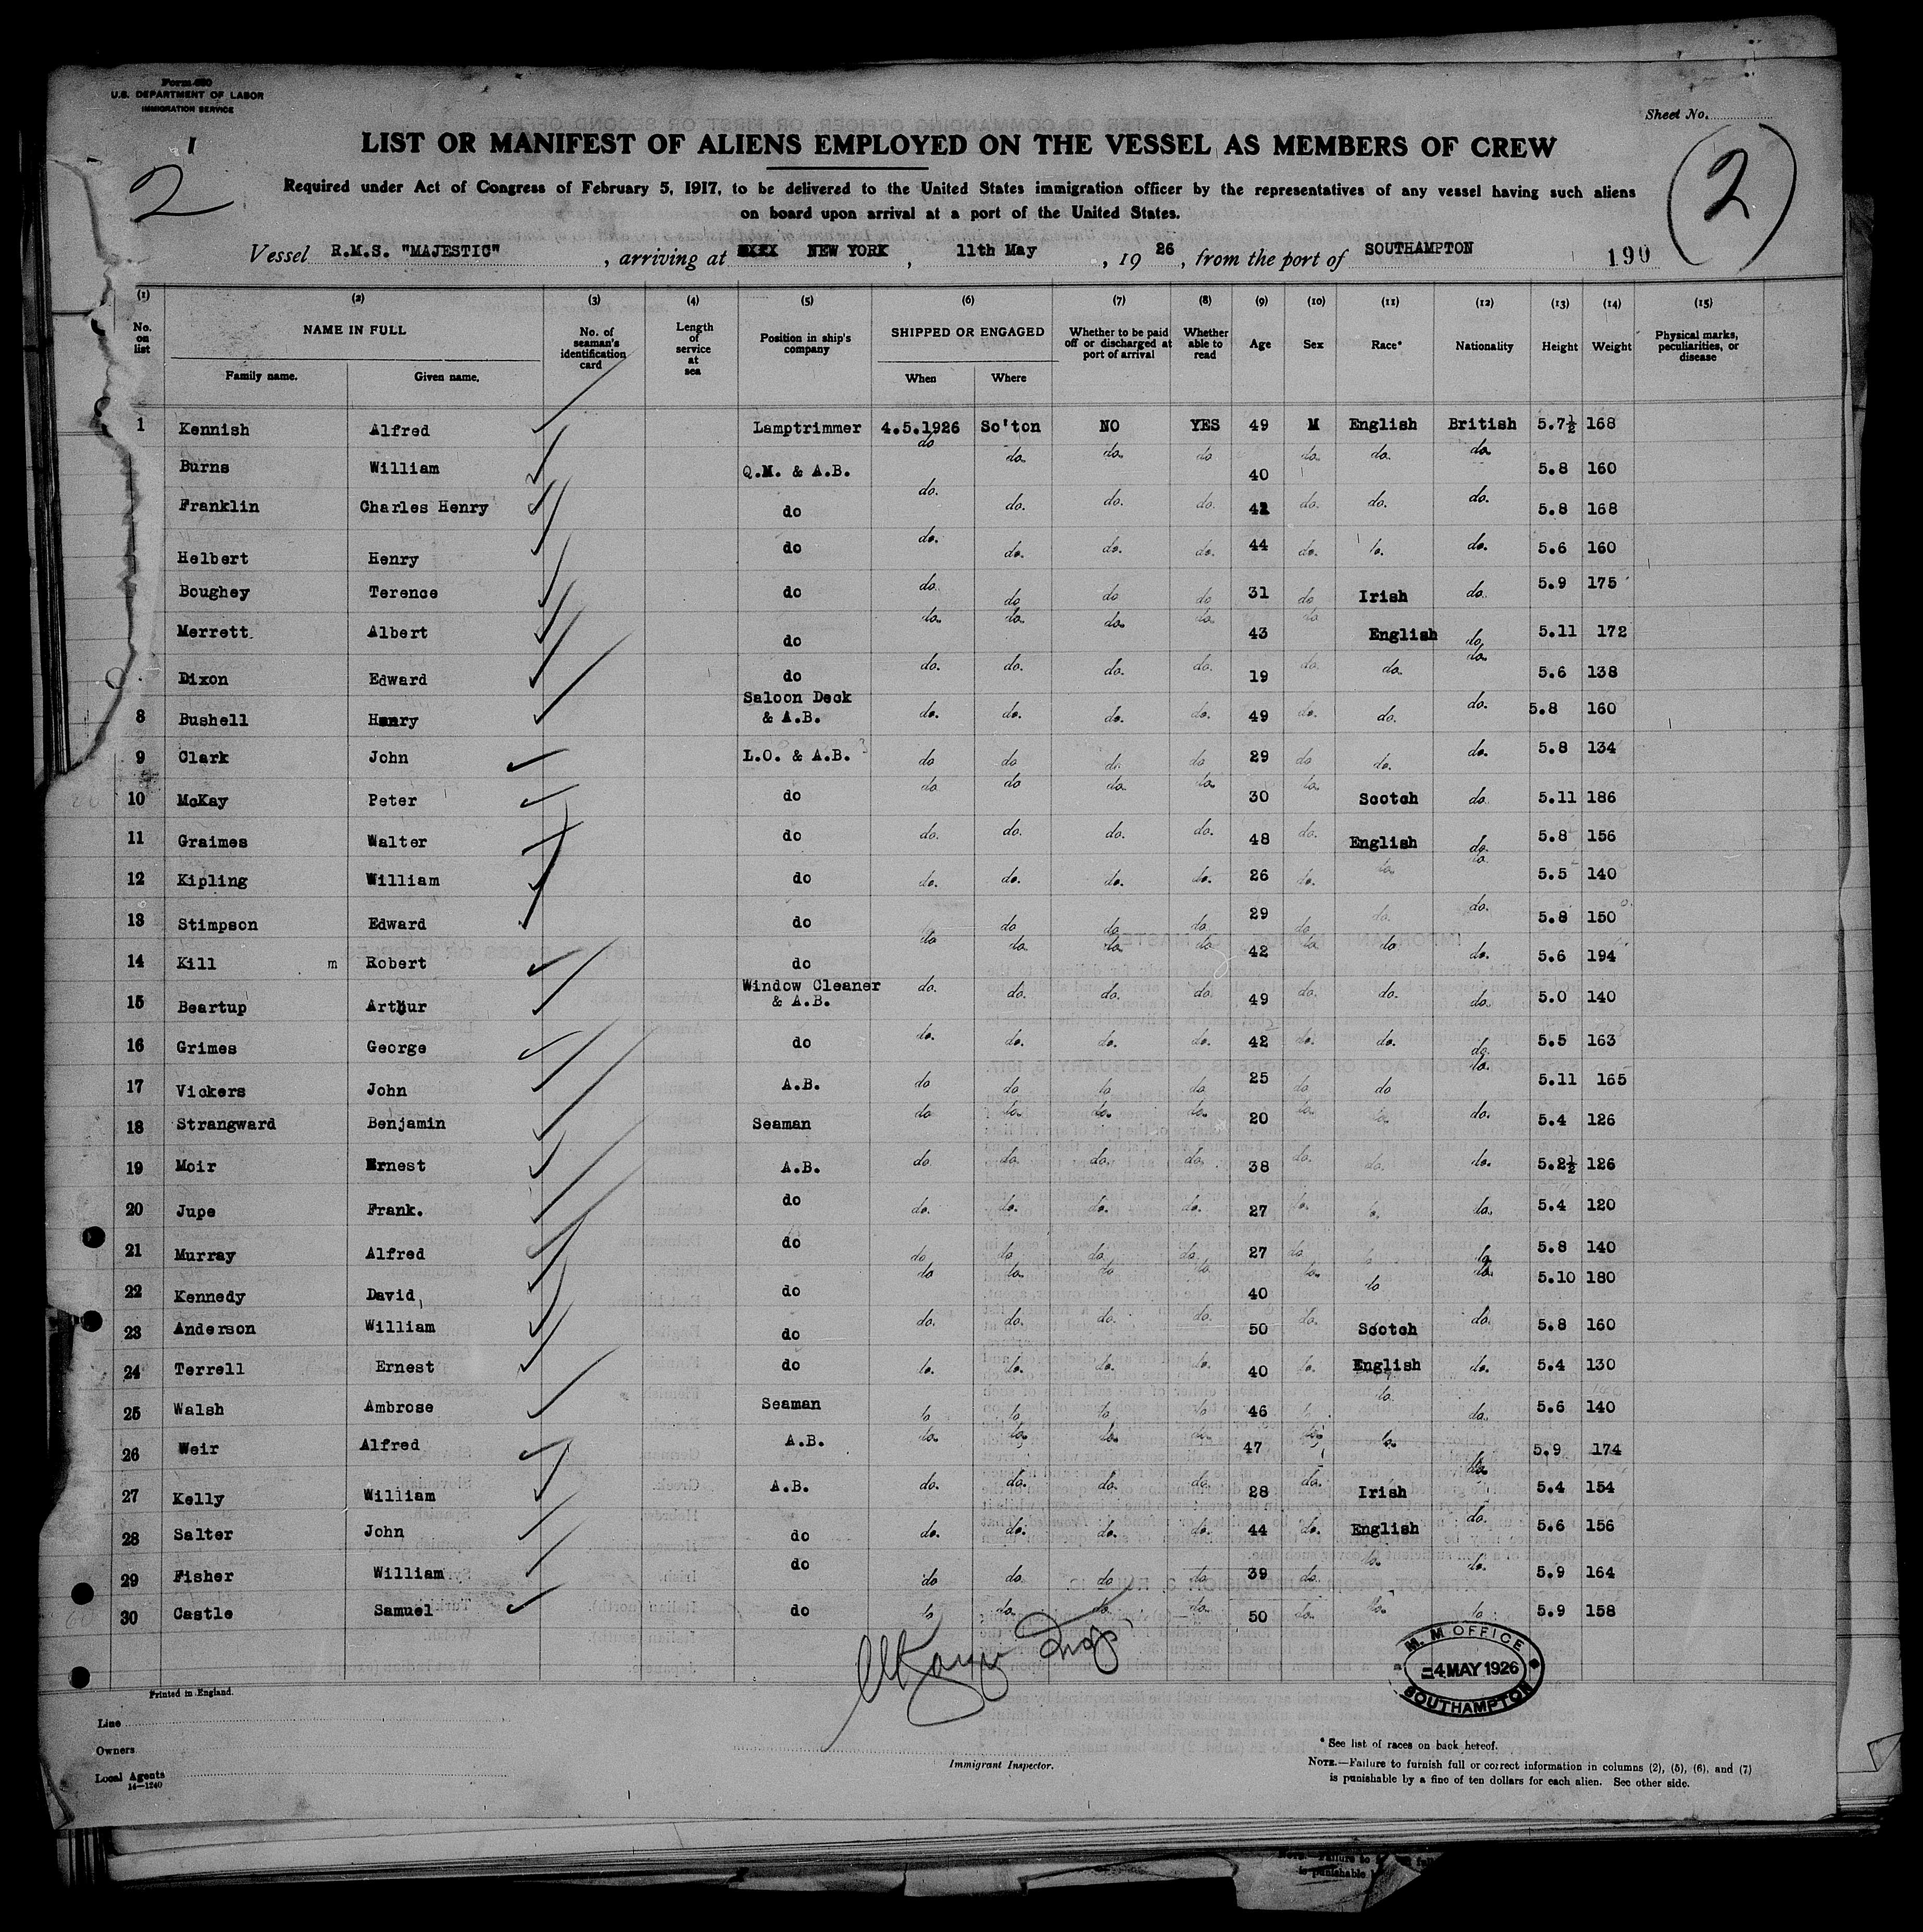 Form 680
U.S. DEPARTMENT OF LABOR
IMMIGRATION SERVICE
Sheet No.
1
2
(2)
LIST OR MANIFEST OF ALIENS EMPLOYED ON THE VESSEL AS MEMBERS OF CREW
Required under Act of Congress of February 5, 1917, to be delivered to the United States immigration officer by the representatives of any vessel having such aliens
on board upon arrival at a port of the United States.
Vessel R.M.S. "MAJESTIC", arriving at NEW YORK, 11th May, 1926, from the port of SOUTHAMPTON 190
(1) (2) (3) (4) (5) (6) (7) (8) (9) (10) (11) (12) (13) (14) (15)
No. on list NAME IN FULL No. of seaman's identification card Length of service at sea Position in ship's company SHIPPED OR ENGAGED Whether to be paid off or discharged at port of arrival Whether able to read Age Sex Race* Nationality Height Weight Physical marks, peculiarities, or disease
Family name. Given name. When Where
1 Kennish Alfred Lamptrimmer 4.5.1926 So'ton NO YES 49 M English British 5.7½ 168
Burns William Q.M. & A.B. do do. do. do 40 do. do. do. 5.8 160
Franklin Charles Henry do do. do. do. do. 42 do. do. do. 5.8 168
Helbert Henry do do. do. do. do. 44 do. do. do. 5.6 160
Boughey Terence do do. do do do 31 do Irish do. 5.9 175
Merrett Albert do do. do. do. do. 43 do English do 5.11 172
Dixon Edward do do. do. do. do. 19 do. do. do. 5.6 138
8 Bushell Henry Saloon Deck & A.B. do. do. do. do. 49 do. do. do. 5.8 160
9 Clark John L.O. & A.B. do do do. do 29 do do. do. 5.8 134
10 McKay Peter do do do do. do. 30 do. Scotch do. 5.11 186
11 Graimes Walter do do. do. do. do. 48 do. English do. 5.8 156
12 Kipling William do do. do. do. do. 26 do. do. do. 5.5 140
13 Stimpson Edward do do do do do 29 do do. do. 5.8 150
14 Kill m Robert do do do. do. do. 42 do do do. 5.6 194
15 Beartup Arthur Window Cleaner & A.B. do. do. do. do. 49 do. do. do. 5.0 140
16 Grimes George do do. do. do. do. 42 do. do. do. 5.5 163
17 Vickers John A.B. do do do do 25 do do do. 5.11 165
18 Strangward Benjamin Seaman do do. do. do. 20 do. do. do. 5.4 126
19 Moir Ernest A.B. do do. do. do. 38 do. do. do. 5.2½ 126
20 Jupe Frank. do do. do. do. do. 27 do. do. do. 5.4 120
21 Murray Alfred do do do do do 27 do do do 5.8 140
22 Kennedy David do do do. do do. 40 do. do do. 5.10 180
23 Anderson William do do. do. do. do. 50 do. Scotch do. 5.8 160
24 Terrell Ernest do do. do. do. do. 40 do. English do. 5.4 130
25 Walsh Ambrose Seaman do do do do 46 do do. do. 5.6 140
26 Weir Alfred A.B. do. do. do. do. 47 do. do. 5.9 174
27 Kelly William A.B. do. do. do. do. 28 do. Irish do. 5.4 154
28 Salter John do do. do. do. do. 44 do. English do. 5.6 156
29 Fisher William do do do. do do 39 do. do. do. 5.9 164
30 Castle Samuel do do do. do. do. 50 do. do. do 5.9 158
M. M OFFICE
4 MAY 1926
SOUTHAMPTON
Printed in England.
Line
Owners
Local Agents
14—1240
Immigrant Inspector.
* See list of races on back hereof.
NOTE.—Failure to furnish full or correct information in columns (2), (5), (6), and (7)
is punishable by a fine of ten dollars for each alien. See other side.